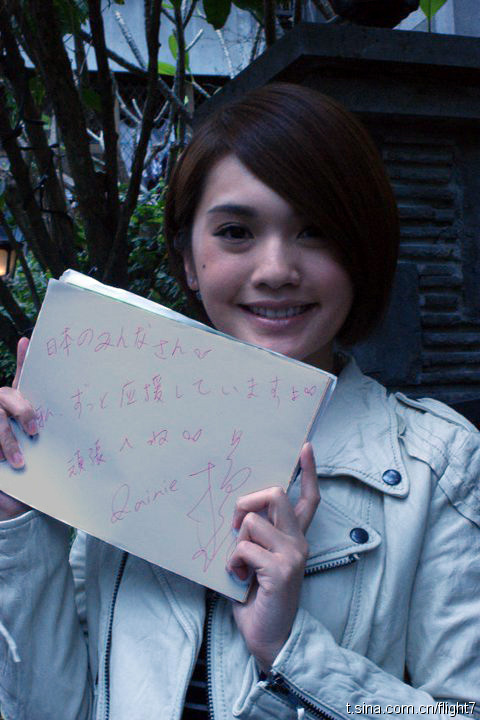 日本のみんなさん♡
私、ずっと応援していますよ♡♡
頑張へね♡♡
Rainie 楊
t.sina.com.cn/flight7